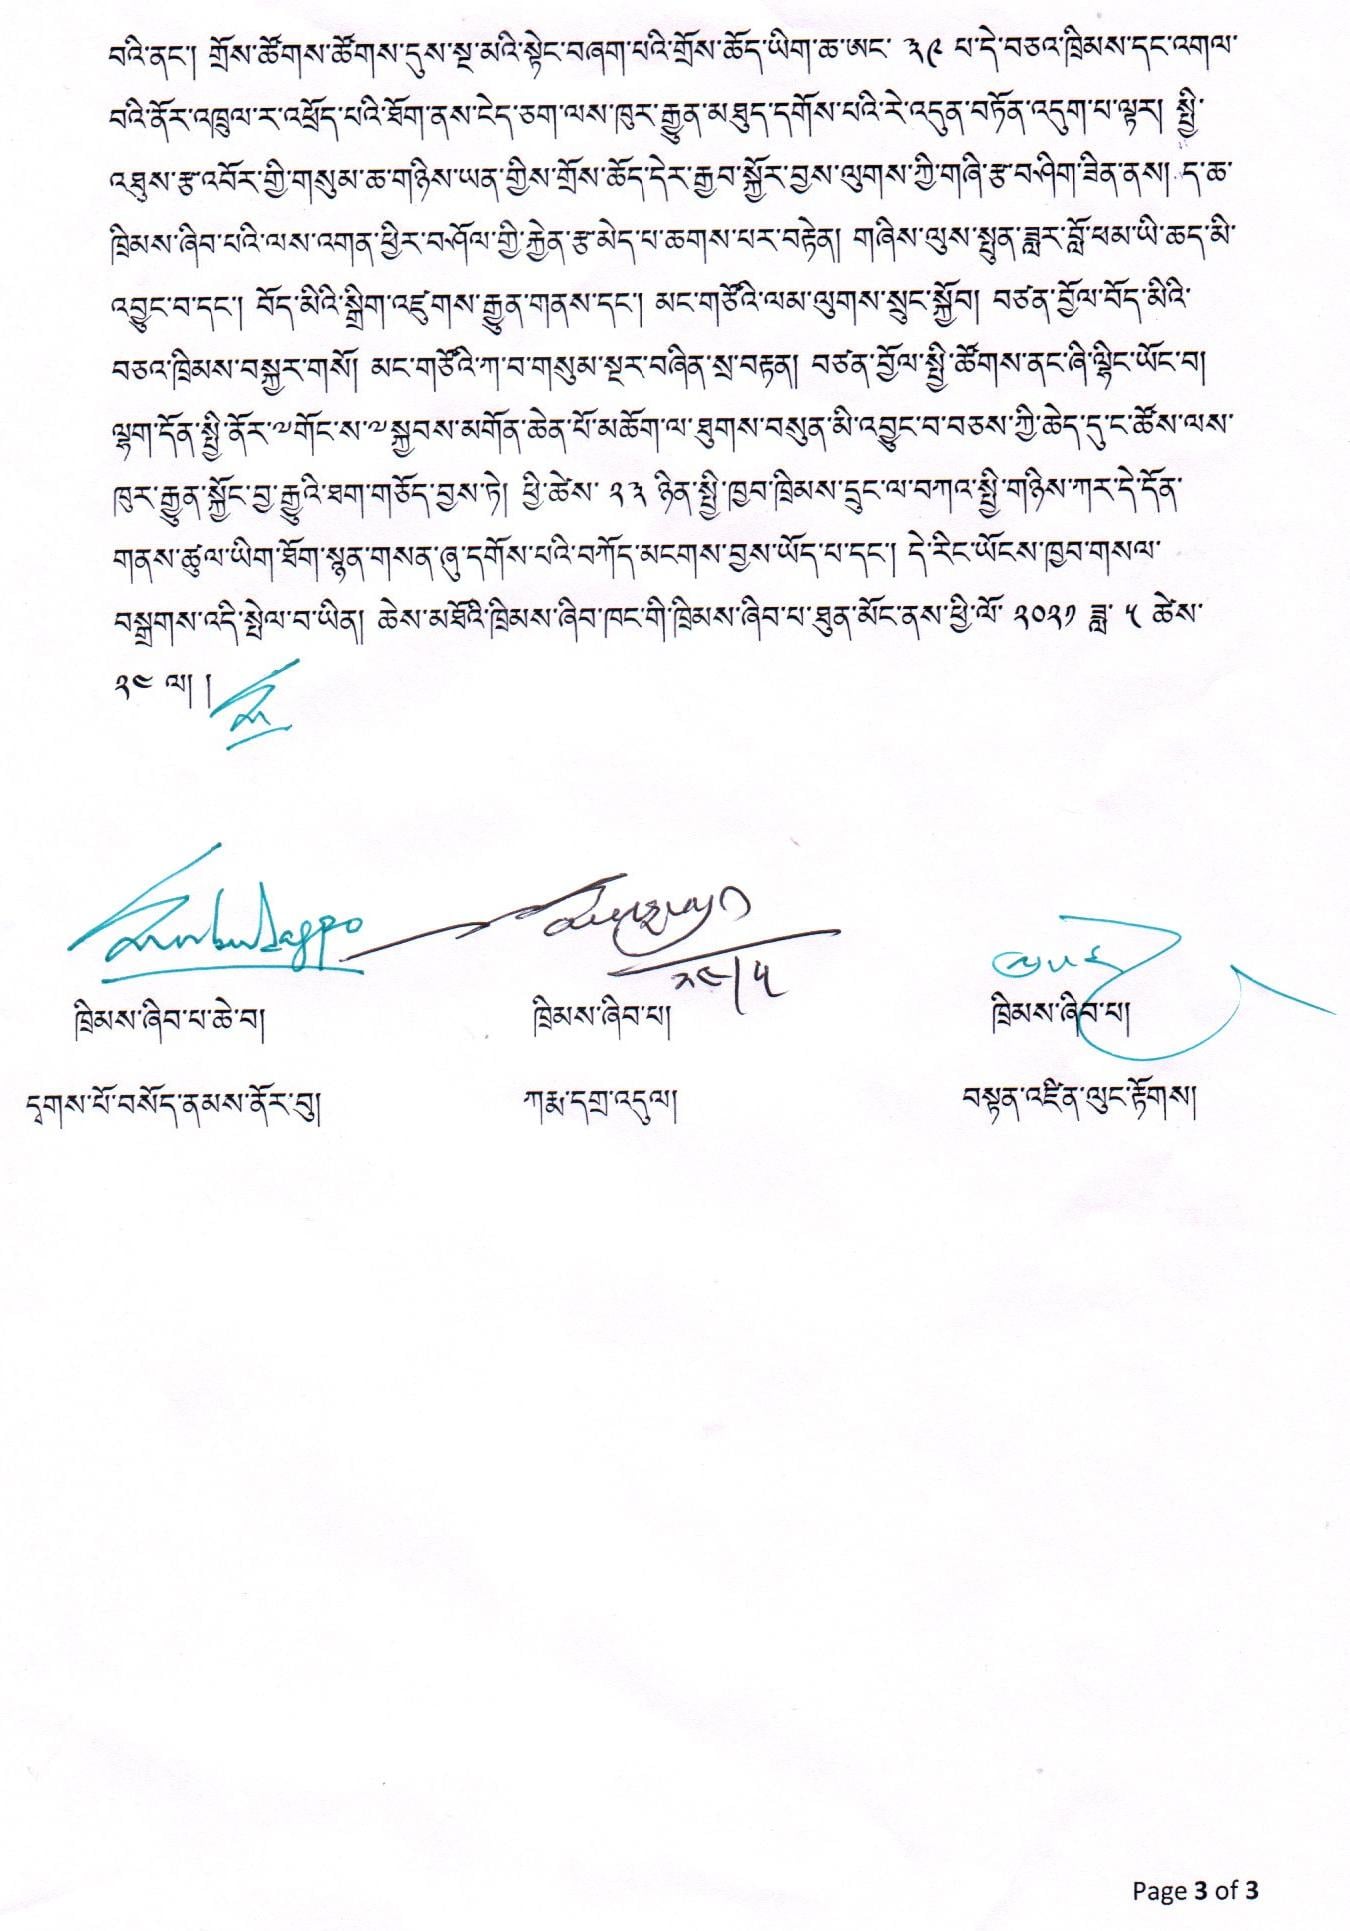 བའི་ནང་། གྲོས་ཚོགས་ཚོགས་དུས་སྔ་མའི་སྟེང་བཞག་པའི་གྲོས་ཆོད་ཡིག་ཆ་ཨང་ ༣༩ པ་དེ་བཅའ་ཁྲིམས་དང་འགལ་
བའི་ནོར་འཁྲུལ་ར་འཕྲོད་པའི་ཐོག་ནས་ངེད་ཅག་ལས་ཁུར་རྒྱུན་མཐུད་དགོས་པའི་རེ་འདུན་བཏོན་འདུག་པ་ལྟར། སྤྱི་
འཐུས་རྩ་འབོར་གྱི་གསུམ་ཆ་གཉིས་ཡན་གྱིས་གྲོས་ཆོད་དེར་རྒྱབ་སྐྱོར་བྱས་ལུགས་ཀྱི་གཞི་རྩ་བ་ཤིག་ཟིན་ནས། ད་ཆ་
ཁྲིམས་ཞིབ་པའི་ལས་འགན་ཕྱིར་བཤོལ་གྱི་རྐྱེན་རྩ་མེད་པ་ཆགས་པར་བརྟེན། གཞིས་ལུས་སྤུན་ཟླར་བློ་ཕམ་ཡི་ཆད་མི་
འབྱུང་བ་དང་། བོད་མིའི་སྒྲིག་འཛུགས་རྒྱུན་གནས་དང་། མང་གཙོའི་ལམ་ལུགས་སྲུང་སྐྱོབ། བཙན་བྱོལ་བོད་མིའི་
བཅའ་ཁྲིམས་བསྐྱར་གསོ། མང་གཙོའི་ཀ་བ་གསུམ་སྔར་བཞིན་སྲ་བརྟན། བཙན་བྱོལ་སྤྱི་ཚོགས་ནང་ཞི་ལྷིང་ཡོང་བ།
ལྷག་དོན་སྤྱི་ནོར་༧གོང་ས་༧སྐྱབས་མགོན་ཆེན་པོ་མཆོག་ལ་ཐུགས་བསུན་མི་འབྱུང་བ་བཅས་ཀྱི་ཆེད་དུ་ང་ཚོས་ལས་
ཁུར་རྒྱུན་སྐྱོང་བྱ་རྒྱུའི་ཐག་གཅོད་བྱས་ཏེ། ཕྱི་ཚེས་ ༢༣ ཉིན་སྤྱི་ཁྱབ་ཁྲིམས་དྲུང་ལ་བཀའ་སྤྱི་གཉིས་ཀར་དེ་དོན་
གནས་ཚུལ་ཡིག་ཐོག་སྙན་གསན་ཞུ་དགོས་པའི་བཀོད་མངགས་བྱས་ཡོད་པ་དང་། དེ་རིང་ཡོངས་ཁྱབ་གསལ་
བསྒྲགས་འདི་སྤེལ་བ་ཡིན། ཆེས་མཐོའི་ཁྲིམས་ཞིབ་ཁང་གི་ཁྲིམས་ཞིབ་པ་ཐུན་མོང་ནས་ཕྱི་ལོ་ ༢༠༢༡ ཟླ་ ༥ ཚེས་
༢༤ ལ། །
༢༤/༥
ཁྲིམས་ཞིབ་པ་ཆེ་བ། ཁྲིམས་ཞིབ་པ། ཁྲིམས་ཞིབ་པ།
དྭགས་པོ་བསོད་ནམས་ནོར་བུ། ཀརྨ་དགྲ་འདུལ། བསྟན་འཛིན་ལུང་རྟོགས།
Page 3 of 3